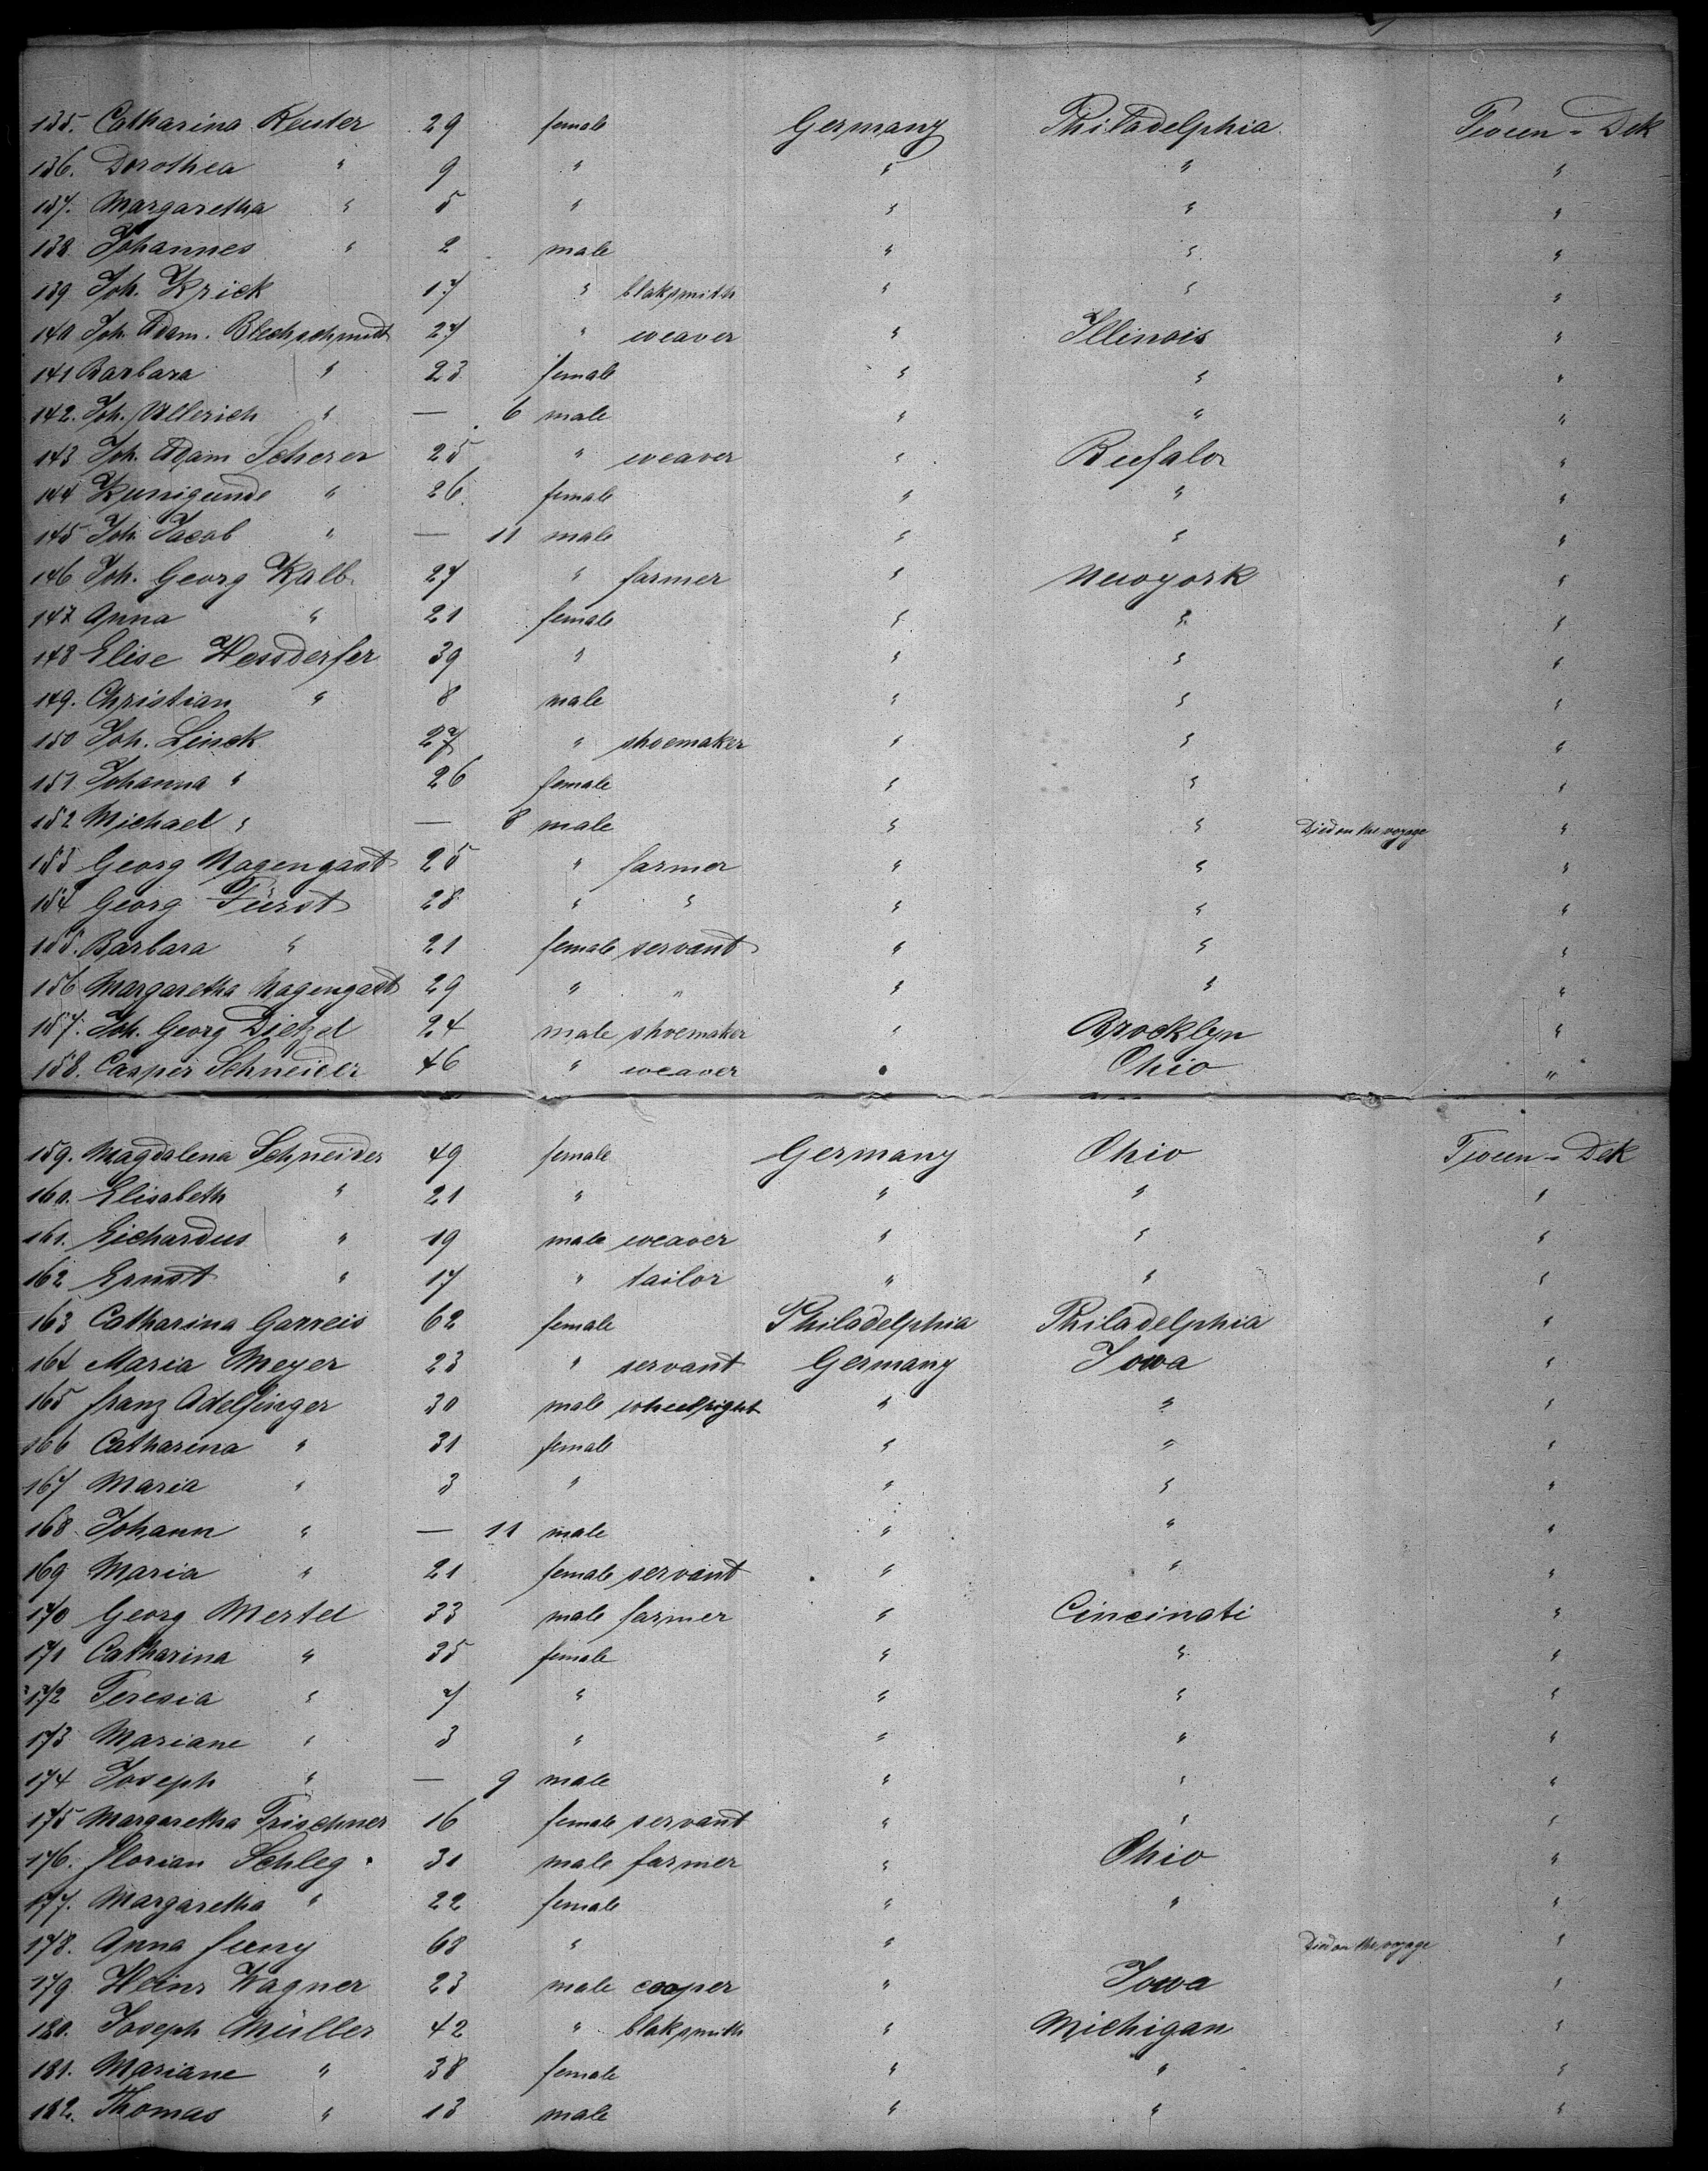 135. Catharina Reuter 29 female Germany Philadelphia Tween-Dek
136. Dorothea " 9 " " " "
137. Margaretha " 5 " " " "
138. Johannes " 2 male " " "
139 Joh. Krick 17 " blaksmith " " "
140 Joh. Adam. Blechschmidt 27 " weaver " Illinois "
141 Barbara " 23 female " " "
142. Joh. Ullerich " — 6 male " " "
143 Joh. Adam Scherer 25 " weaver " Bufalo "
144 Kunigunde " 26 female " " "
145 Joh Jacob " — 11 male " " "
146 Joh. Georg Kalb 27 " farmer " Newyork "
147 Anna " 21 female " " "
148 Elise Hessderfer 39 " " " "
149. Christian " 8 male " " "
150 Joh. Linck 27 " shoemaker " " "
151. Johanna " 26 female " " "
152 Michael " — 8 male " " Died on the voyage "
153 Georg Nagengast 25 " farmer " " "
154 Georg Fürst 28 " " " " "
155. Barbara " 21 female servant " " "
156 Margaretha Nagengast 29 " " " " "
157. Joh. Georg Dietzel 24 male shoemaker " Brocklyn "
158. Casper Schneider 46 " weaver " Ohio "
159. Magdalena Schneider 49 female Germany Ohio Tween-Dek
160. Elisabeth " 21 " " " "
161. Eichardus " 19 male weaver " " "
162 Ernst " 17 " tailor " " "
163 Catharina Garreis 62 female Philadelphia Philadelphia "
164 Maria Meyer 23 " servant Germany Iowa "
165 Franz Adelfinger 30 male wheelright " " "
166 Catharina " 31 female " " "
167 Maria " 3 " " " "
168. Johann " — 11 male " " "
169 Maria " 21 female servant " " "
170 Georg Mertel 33 male farmer " Cincinati "
171 Catharina " 35 female " " "
172 Teresia " 7 " " " "
173 Mariane " 3 " " " "
174 Joseph " — 9 male " " "
175 Margaretha Trischner 16 female servant " " "
176. Florian Schleg 31 male farmer " Ohio "
177. Margaretha " 22 female " " "
178. Anna 68 " " Died on the voyage "
179. Heinr Wagner 23 male cooper " Iowa "
180. Joseph Müller 42 " blaksmith " Michigan "
181. Mariane " 38 female " " "
182. Thomas " 13 male " " "